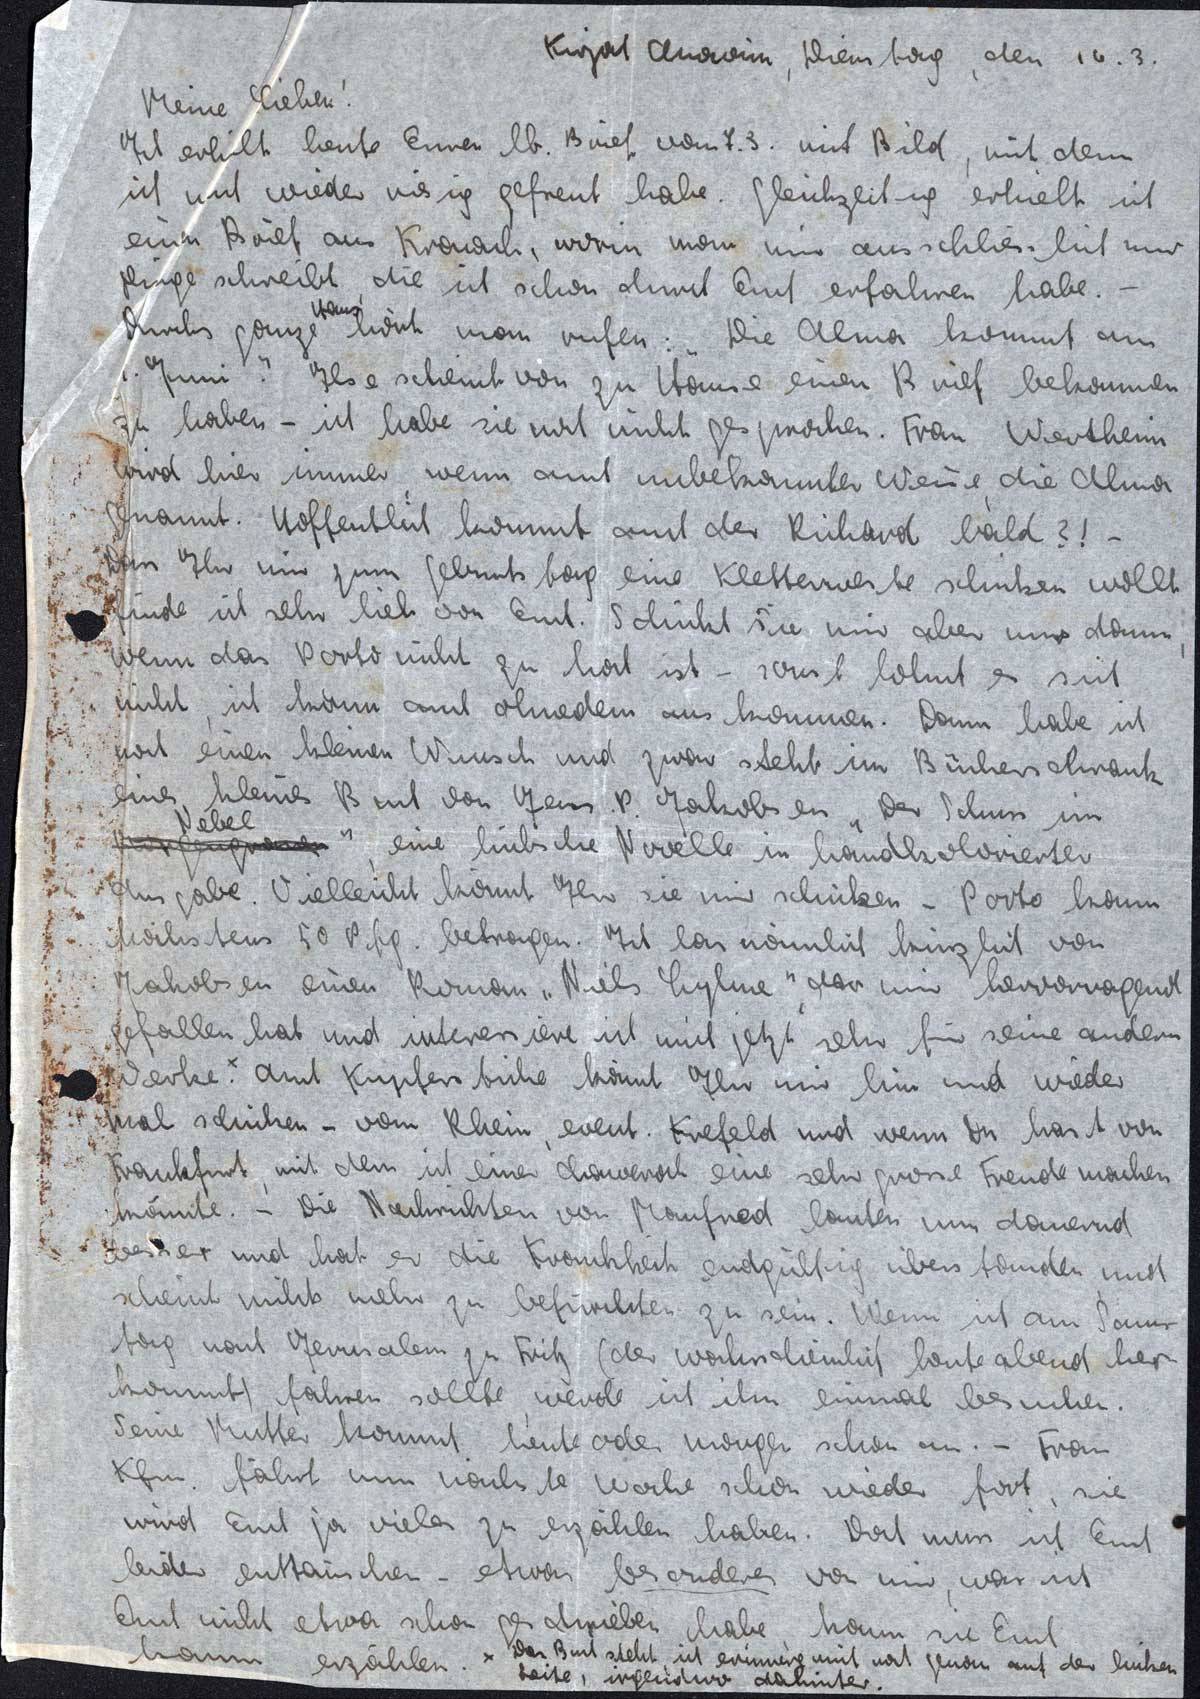 Kirjat Anavim, Dienstag, den 16.3.
Meine Lieben!
Ich erhielt heute Euren lb. Brief vom 7.3. mit Bild, mit dem
ich mich wieder riesig gefreut habe. Gleichzeitig erhielt ich
einen Brief aus Kronach, worin man mir ausschliesslich nur
Dinge schreibt die ich schon durch Euch erfahren habe. –
Durchs ganze Haus hört man rufen: "Die Alma kommt am
1. Juni". Ilse scheint von zu Hause einen Brief bekommen
zu haben – ich habe sie noch nicht gesprochen. Frau Wertheim
wird hier immer wenn auch unbekannter Weise, die Alma
genannt. Hoffentlich kommt auch der Richard bald?! –
Dass Ihr mir zum Geburtstag eine Kletterweste schicken wollt
finde ich sehr lieb von Euch. Schickt sie mir aber nur dann,
wenn das Porto nicht zu hoch ist – sonst lohnt es sich
nicht, ich kann auch ohnedem auskommen. Dann habe ich
noch einen kleinen Wunsch und zwar steht im Bücherschrank
eines kleines Buch von Jens P. Jakobsen "Der Schuss im
Nebel", eine hübsche Novelle in handkolorierter
Ausgabe. Vielleicht könnt Ihr sie mir schicken – Porto kann
höchstens 50 Pfg. betragen. Ich las nämlich kürzlich von
Jakobsen einen Roman "Niels Lyhne", der mir hervorragend
gefallen hat und interessiere ich mich jetzt sehr für seine andern
Werke.x Auch Kupferstiche könnt Ihr mir hin und wieder
mal schicken – vom Rhein, event. Krefeld und wenn Du hast von
Frankfurt, mit dem ich einer Chaweroth eine sehr grosse Freude machen
könnte. – Die Nachrichten von Manfred lauten nun dauernd
besser und hat er die Krankheit endgültig überstanden und
scheint nichts mehr zu befürchten zu sein. Wenn ich am Sams-
tag nach Jerusalem zu Fritz (der wahrscheinlich heute abend her-
kommt) fahren sollte, werde ich ihn einmal besuchen.
Seine Mutter kommt heute oder morgen schon an. – Frau
Kfm. fährt nun nächste Woche schon wieder fort, sie
wird Euch ja vieles zu erzählen haben. Doch muss ich Euch
leider enttäuschen – etwas besonderes von mir, was ich
Euch nicht etwa schon geschrieben habe kann sie Euch
kaum erzählen. x Das Buch steht ich erinnere mich noch genau auf der linken
Seite, irgendwo dahinter.